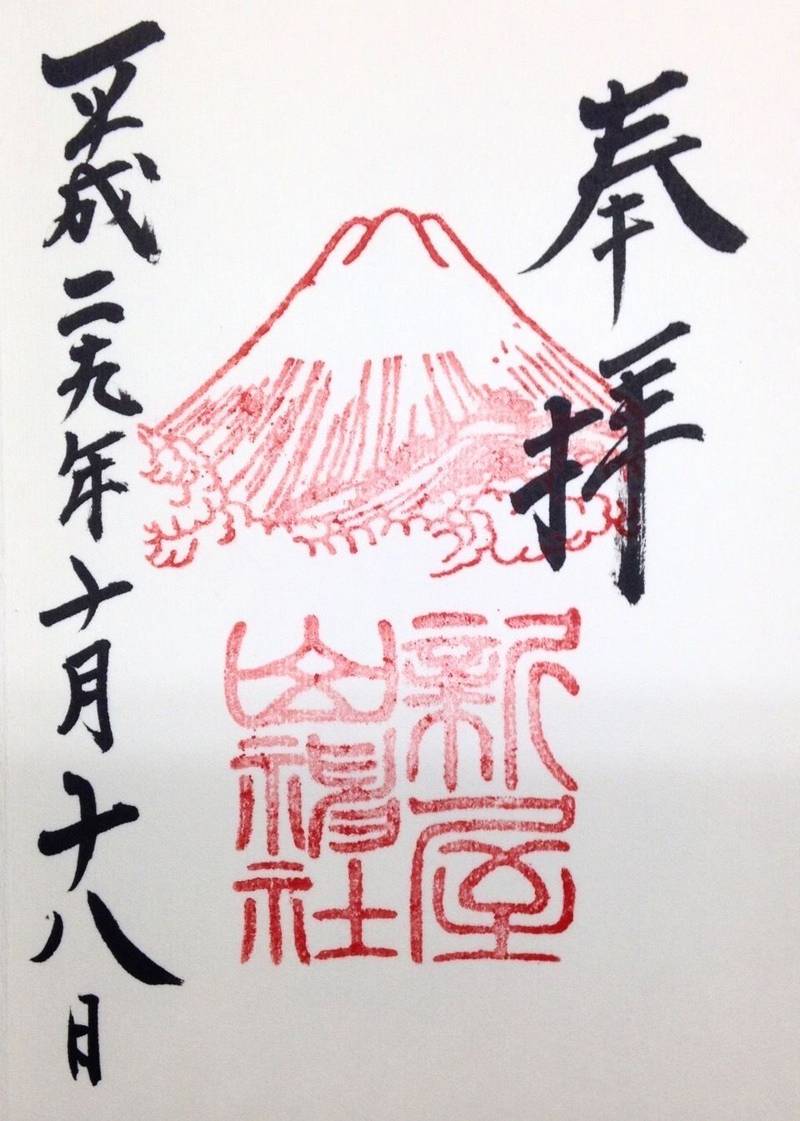 奉拝
新屋
山神社
平成二九年十月十八日